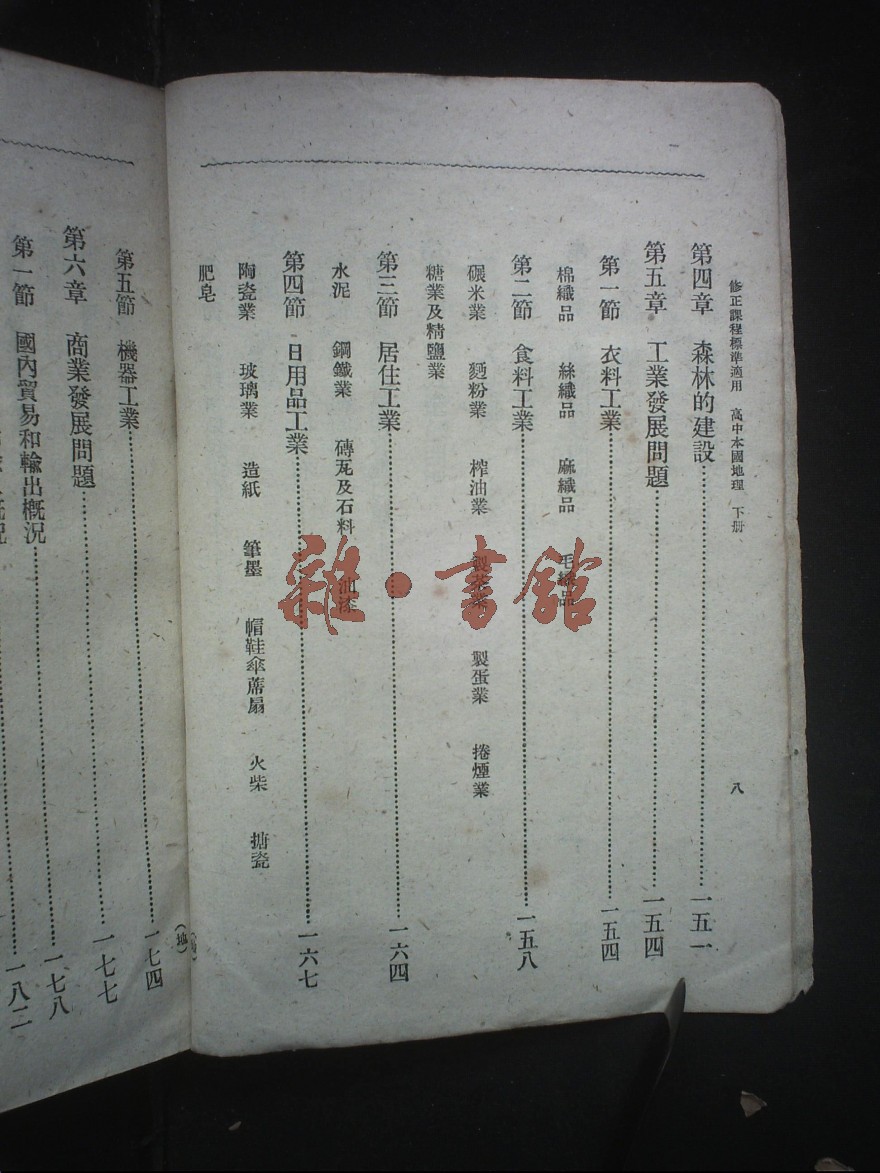 修正課程標準適用 高中本國地理 下册 八
第四章 森林的建設……一五一
第五章 工業發展問題……一五四
第一節 衣料工業……一五四
棉織品 絲織品 麻織品 毛織品
第二節 食料工業……一五八
碾米業 麪粉業 榨油業 製茶業 製蛋業 捲煙業
糖業及精鹽業
第三節 居住工業……一六四
水泥 鋼鐵業 磚瓦及石料 油漆
第四節 日用品工業……一六七
陶瓷業 玻璃業 造紙 筆墨 帽鞋傘蓆扇 火柴 搪瓷
肥皂
第五節 機器工業……一七四
第六章 商業發展問題……一七七
第一節 國內貿易和輸出概況……一七八
一八二
雜·書館